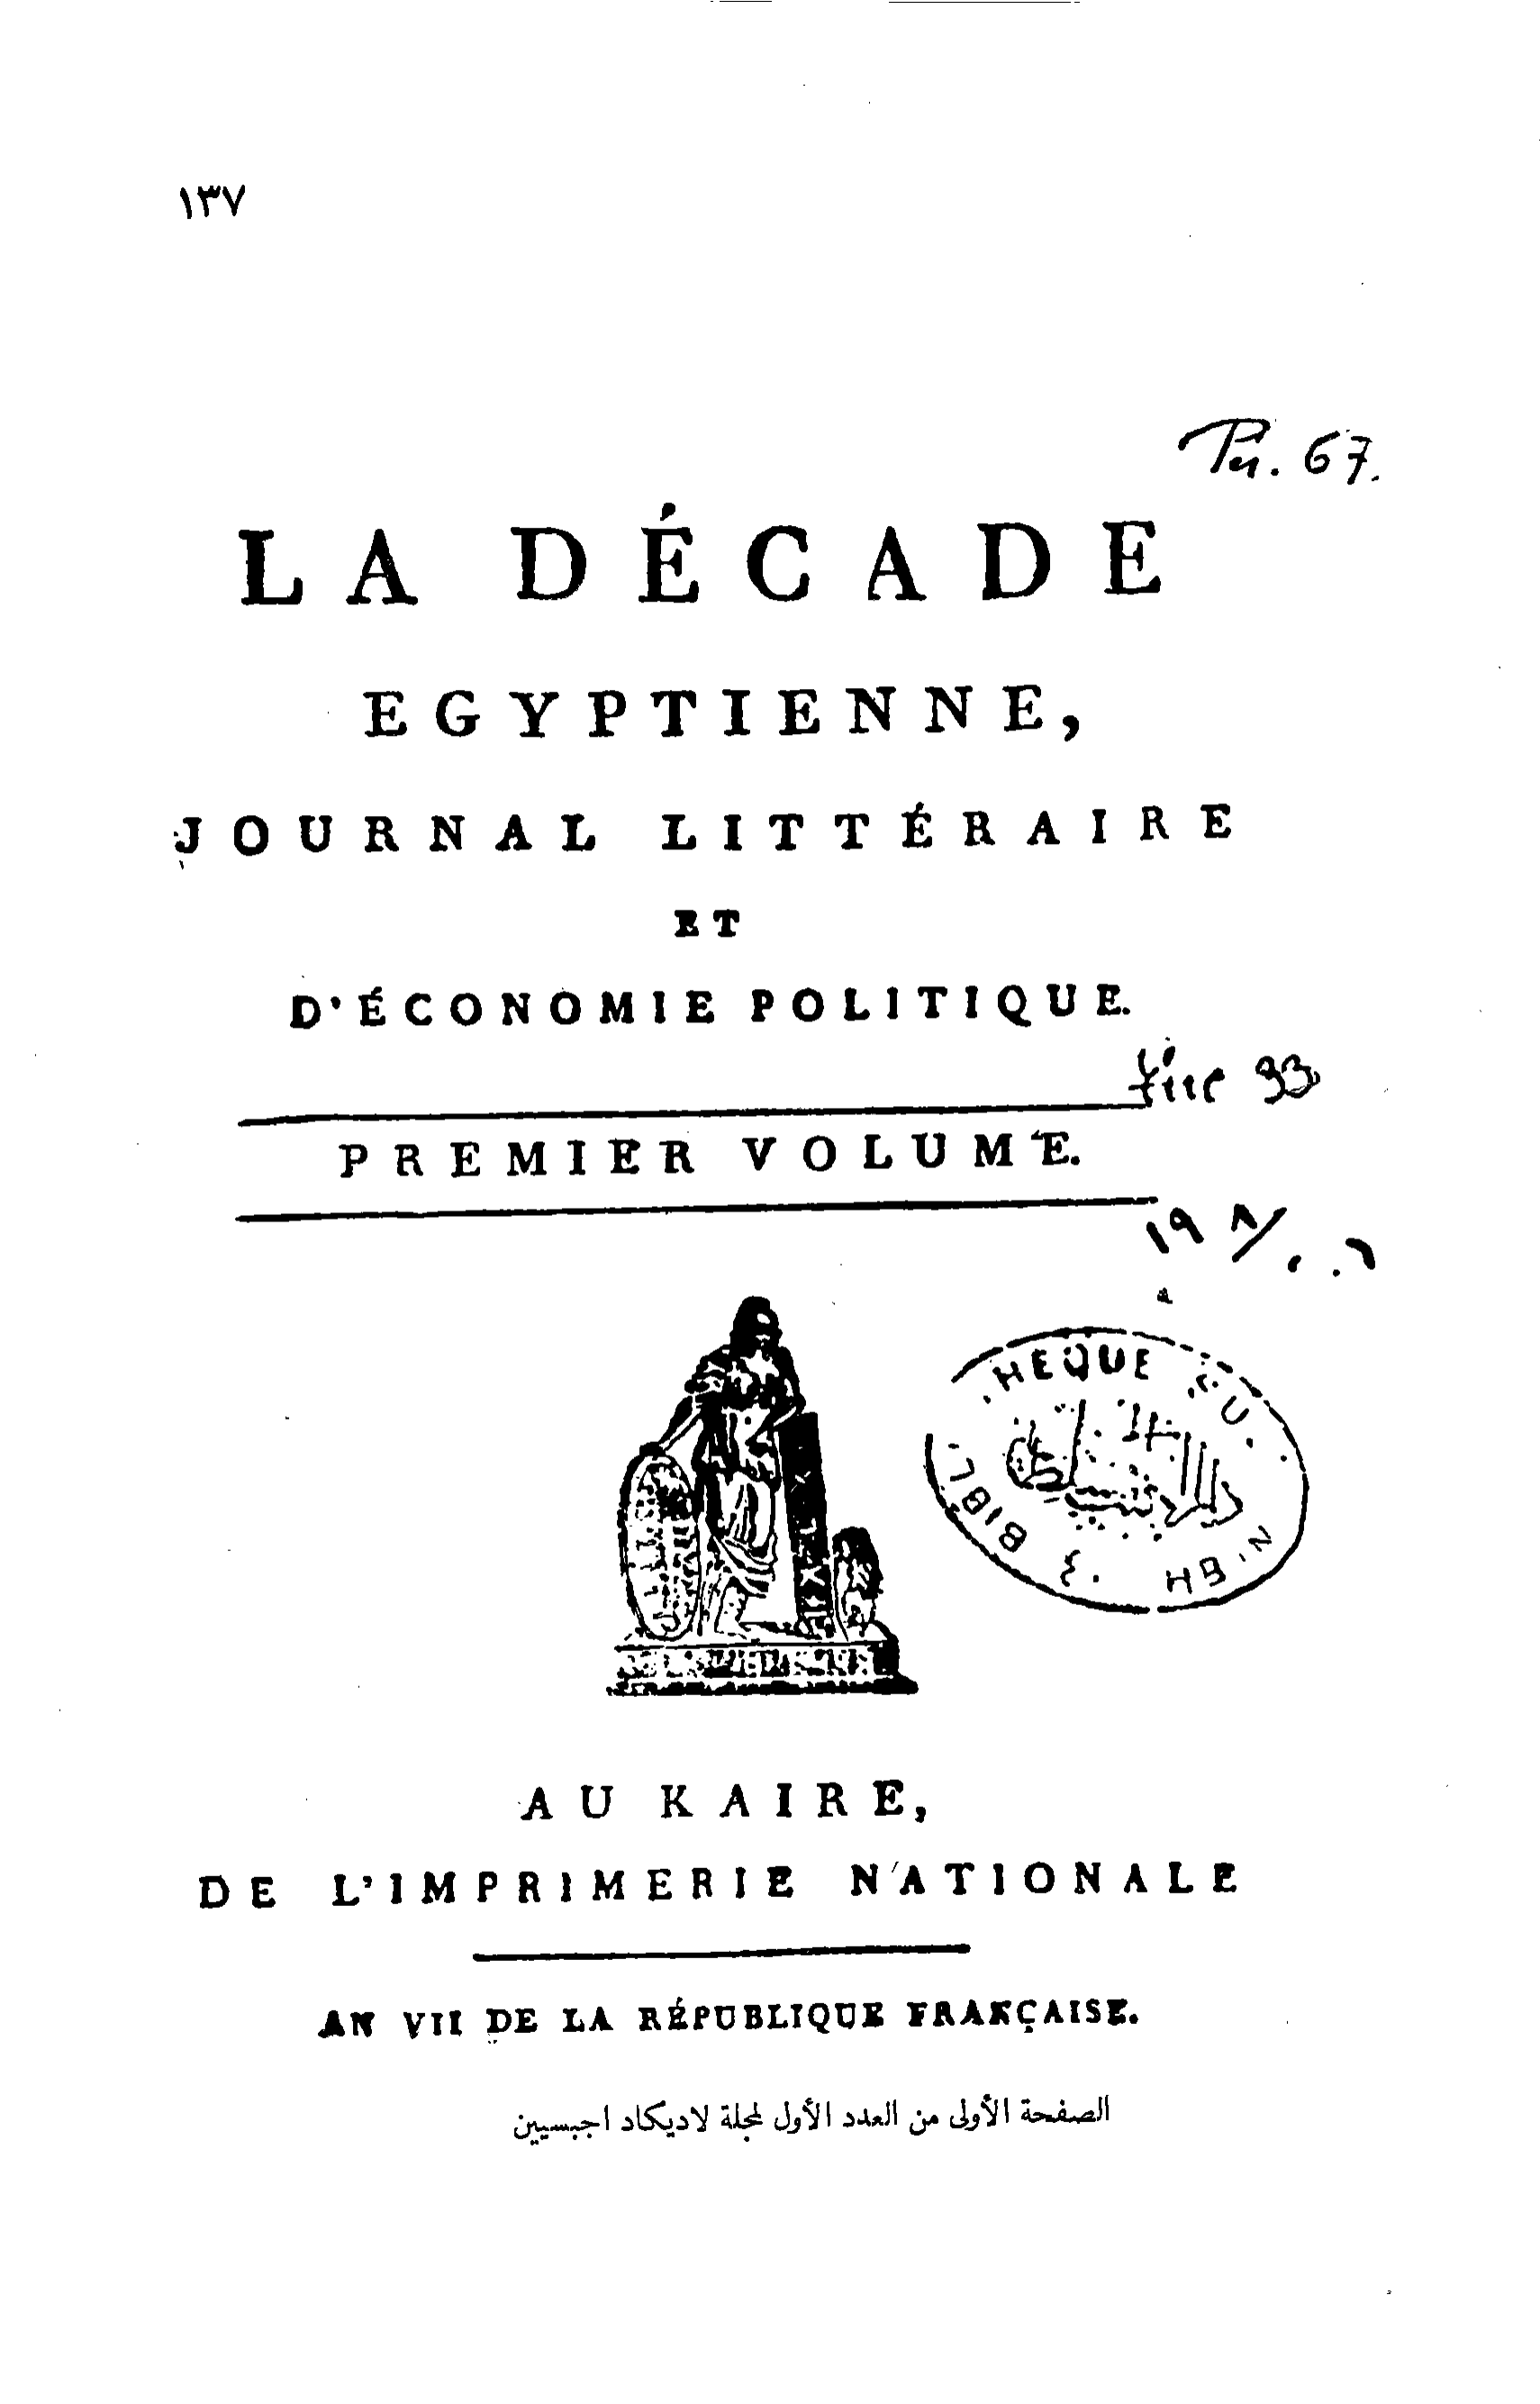 ١٣٧
67.
LA DÉCADE
EGYPTIENNE,
JOURNAL LITTÉRAIRE
ET
D'ÉCONOMIE POLITIQUE.
93
PREMIER VOLUME.
HEQUE
BIBL
AU KAIRE,
DE L'IMPRIMERIE NATIONALE
AN VII DE LA RÉPUBLIQUE FRANÇAISE.
الصفحة الأولى من العدد الأول لمجلة لاديكاد اجبسيين